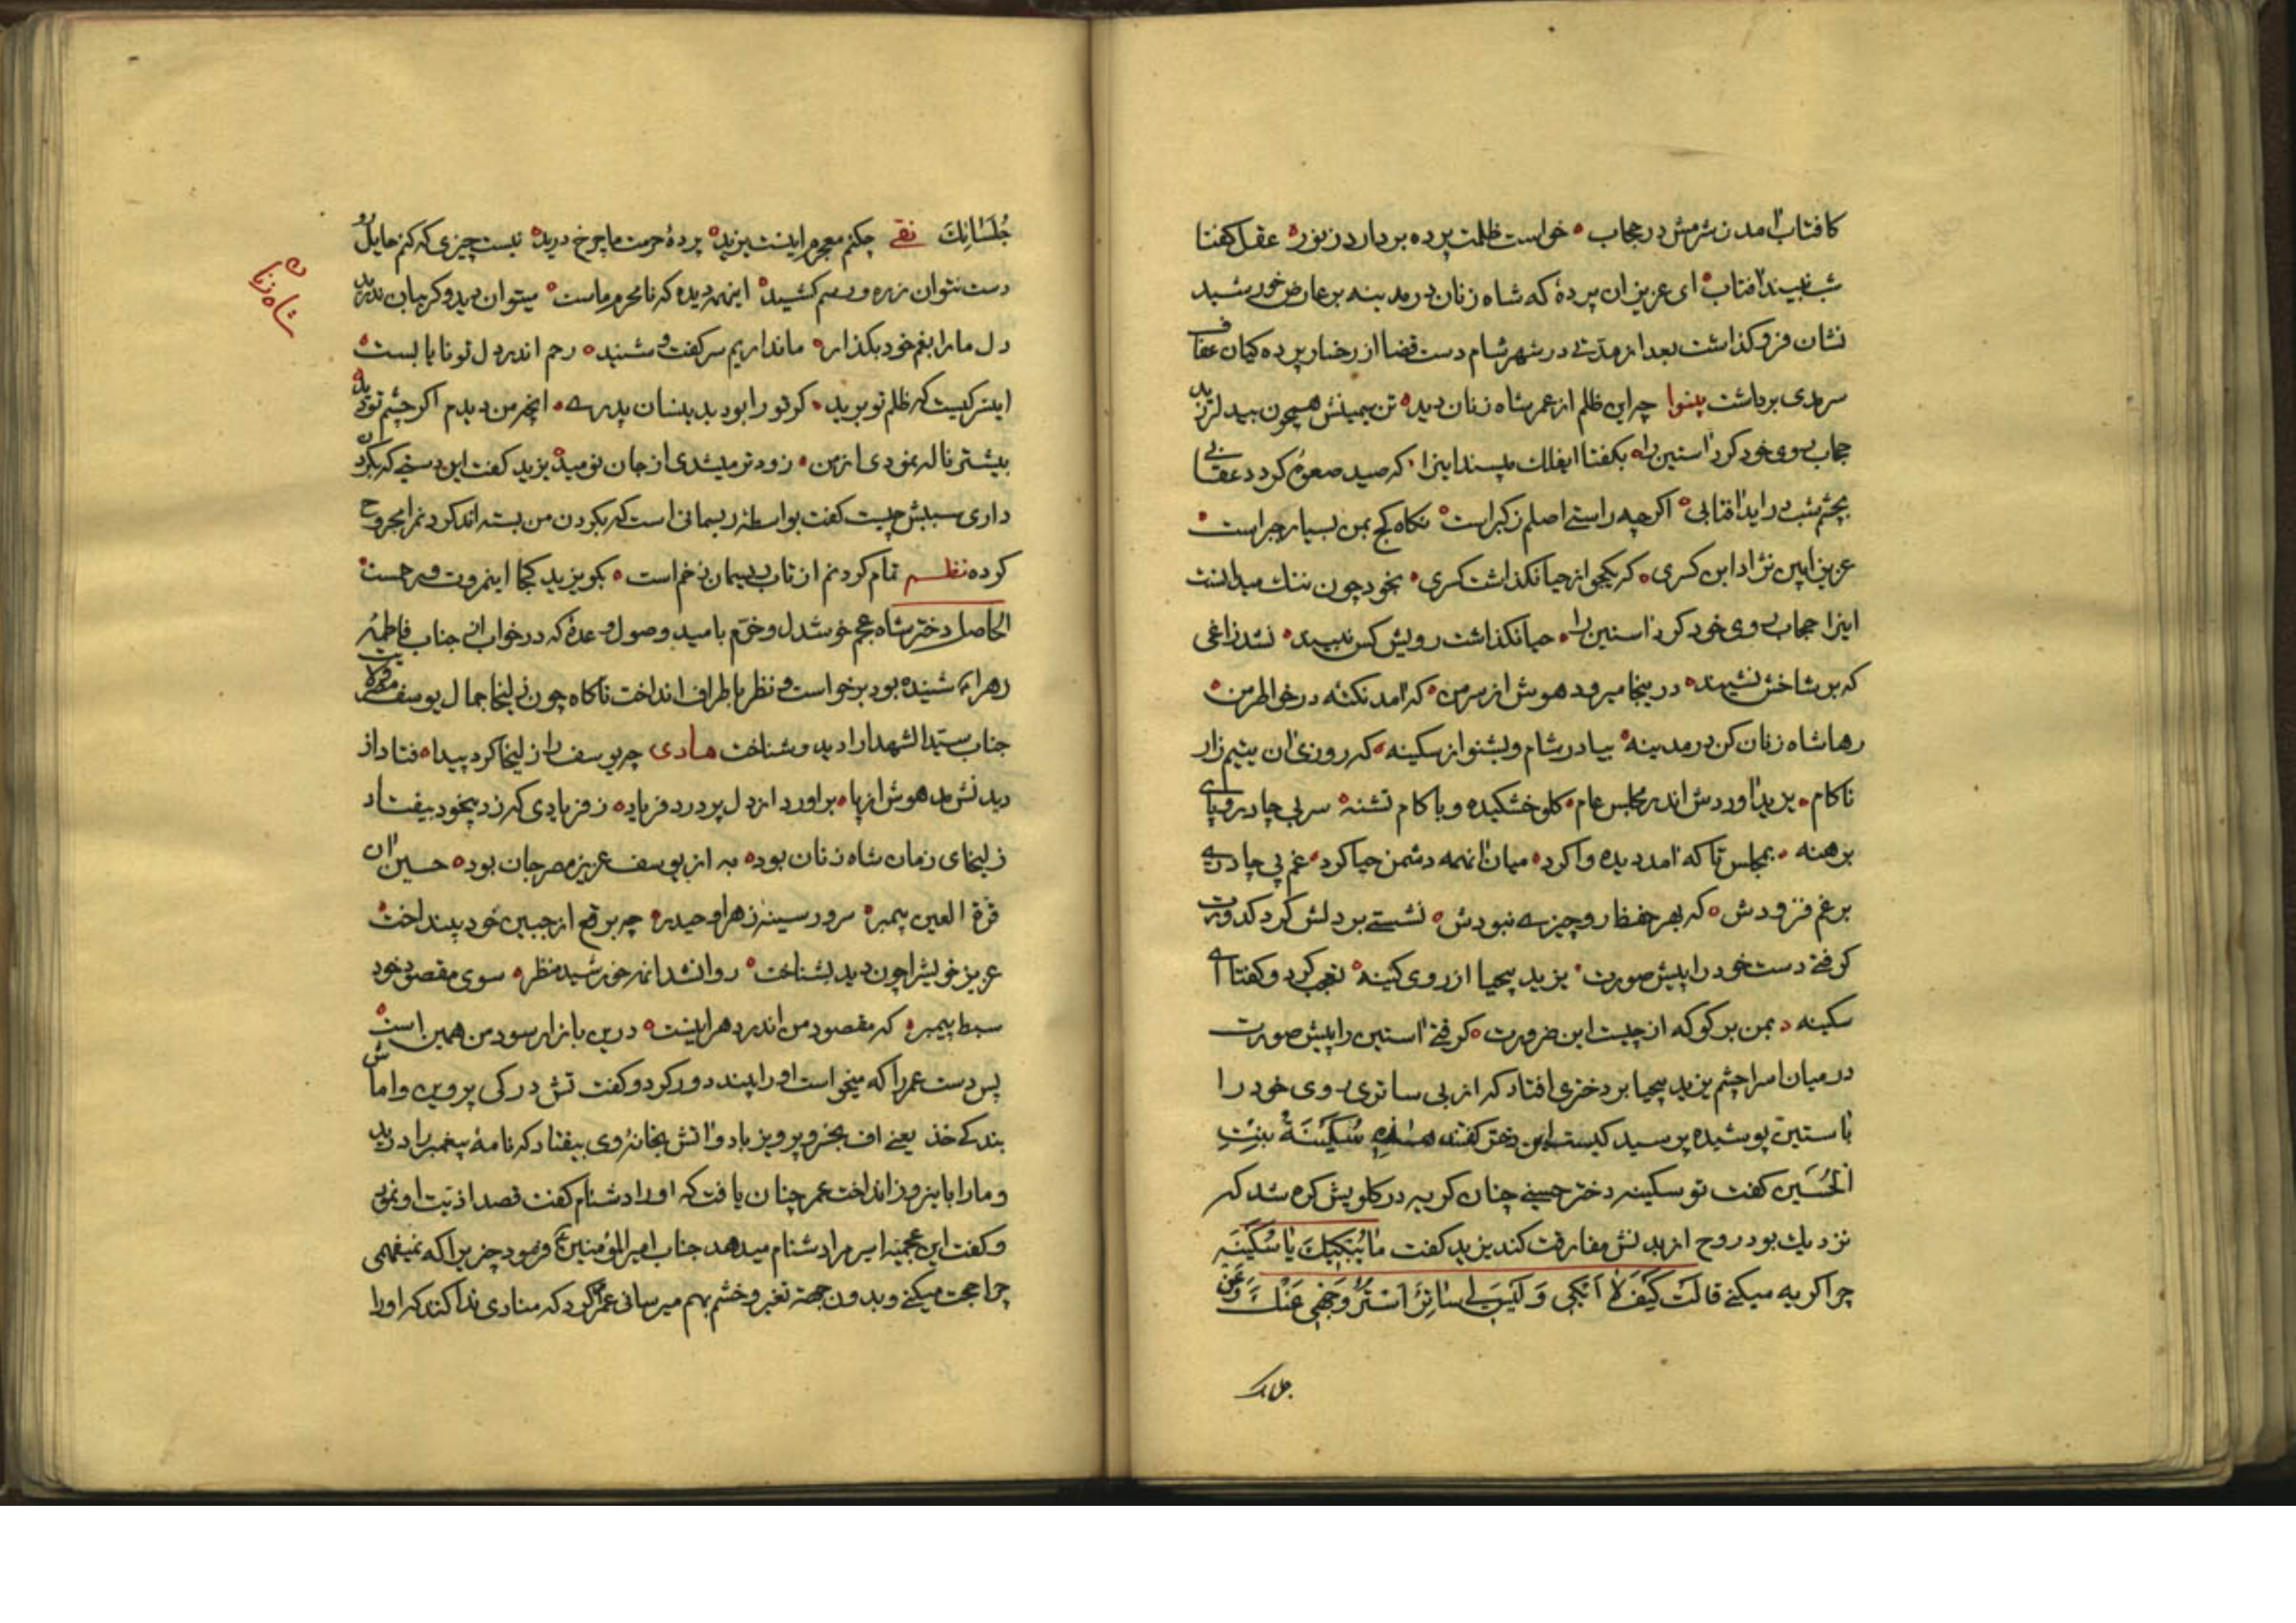 کافتاب آمدن شرمش در حجاب ه خواست ظلمت پرده بردارد ز نور ه عقل گفتا
شب نبیند آفتاب ه ای عزیزان پردهٔ که شاه زنان در مدینه بر عارض خورشید
نشان فرو گذاشت بعد از مدتی در شهر شام دست قضا از رخسار پرده کیان
سرمدی برداشت بینوا چه این ظلم از عمر شاه زنان دید ه تن سیمینش همچون بید لرزید
حجاب روی خود کرد آستین را ه بگفتا ایفلک مپسند اینرا ه که صید صعوهٔ گردد عقابی
بچشم شب در اید آفتابی ه اگرچه راستی اصلم ز گبر است ه نگاه کج بمن بسیار جبر است ه
عزیز این نژاد ابن کسری ه که یکجو از حیا نگذاشت کسری ه بخود چون ننک میدانست
اینرا حجاب روی خود کرد آستین را ه حیا نگذاشت رویش کس ببیند ه نشد زاغی
که بر شاخش نشیند ه در اینجا میرود هوش از سر من ه که آمد نکته در خاطر من ه
رها شاه زنان کن در مدینه ه بیا در شام و بشنو از سکینه ه که روزی آن یتیم زار
ناکام ه یزید آوردش اندر مجلس عام ه گلو خشکیده و با کام تشنه ه سر بی چادر و پای
برهنه ه بمجلس تا که آمد دیده وا کرد ه میان آنهمه دشمن حیا کرد ه غم بی چادری
بر غم فزودش ه که بهر حفظ رو چیزی نبودش ه نشستی بر دلش گرد کدورت
گرفتی دست خود را پیش صورت ه یزید بیحیا از روی کینه ه تعجب کرد و گفتا ای
سکینه ه بمن بر گو که از چیست این ضرورت ه گرفتی آستین را پیش صورت
در میان اسرا چشم یزید بیحیا بر دختری افتاد که از بی ساتری روی خود را
با ستین پوشیده پرسید کیست این دختر گفتند هذه سُکَینَةُ بِنتِ
الحُسَین گفت تو سکینه دختر حسینی چنان گریه در گلویش گره شد که
نزدیک بود روح از بدنش مفارقت کند یزید گفت ما یُبکیکَ یا سُکَینَه
چرا گریه میکنی قالَت کَیفَ لا اَبکی وَ لَیسَ لی ساتِرٌ اَستُرُ وَجهی عَنکَ وَ عَن
جُلَسائِکَ نقی چکنم معجرم اینست یزید ه پردهٔ حرمت ما چرخ درید ه نیست چیزی که کنم حایل رو
دست نتوان ز ره و رسم کشید ه اینهمه دیده که نامحرم ماست ه میتوان دید و گریبان ندرید
دل ما را بغم خود بگذار ه ما نداریم سر گفت و شنید ه رحم اندر دل تو نایابست ه
این کیست که ظلم تو برید ه گر تو را بود بدینسان پدری ه آنچه من دیدم اگر چشم تو دید
بیشتر ناله نمودی از من ه زودتر میشدی از جان نومید ه یزید گفت این دستی که بگردن
داری سببش چیست گفت بواسطه ریسمانی است که بگردن من بسته اند گردنم را مجروح
کرده نظم تمام گردنم از تاب ریسمان زخم است ه بگو یزید کجا این مروت و رحمست ه
الحاصل دختر شاه عجم خوشدل و خرم بامید وصول وعدهٔ که در خواب از جناب فاطمهٔ
زهرا شنیده بود برخواست و نظر باطراف انداخت ناگاه چون زلیخا جمال یوسف
جناب سید الشهدا را دید و شناخت هادی چه یوسف را زلیخا کرد پیدا ه فتاد از
دیدنش مدهوش از پا ه برآورد از دل پر درد فریاد ه ز فریادی که زد بیخود بیفتاد
زلیخای زمان شاه زنان بود ه به از یوسف عزیز مصر جان بود ه حسین آن
قرة العین پیمبر ه سرور سینه زهرا و حیدر ه چه برقع از جبین خود بینداخت ه
عزیز خویشرا چون دید بشناخت ه روان شد آنمه خورشید منظر ه سوی مقصود خود
سبط پیمبر ه که مقصود من اندر دهر اینست ه درین بازار سود من همین است ه
پس دست عمر را که میخواست او را ببیند دور کرد و گفت تش در کی پرویز و اماش
بند کی خذ یعنی اف بخسرو پرویز باد و آتش بخانهٔ وی بیفتاد که نامهٔ پیغمبر را درید
و ما را باینروز انداخت عمر چنان یافت که او را دشنام گفت قصد اذیت او نمود
و گفت این عجمیه اسیر مرا دشنام میدهد جناب امیرالمؤمنین ع فرمود چیزیرا که نمیفهمی
چرا عجت میکنی و بدون جهة تغیر و خشم بهم میرسانی عمر گفت کرد که منادی ندا کند که او را
شاه زنان
جلسا